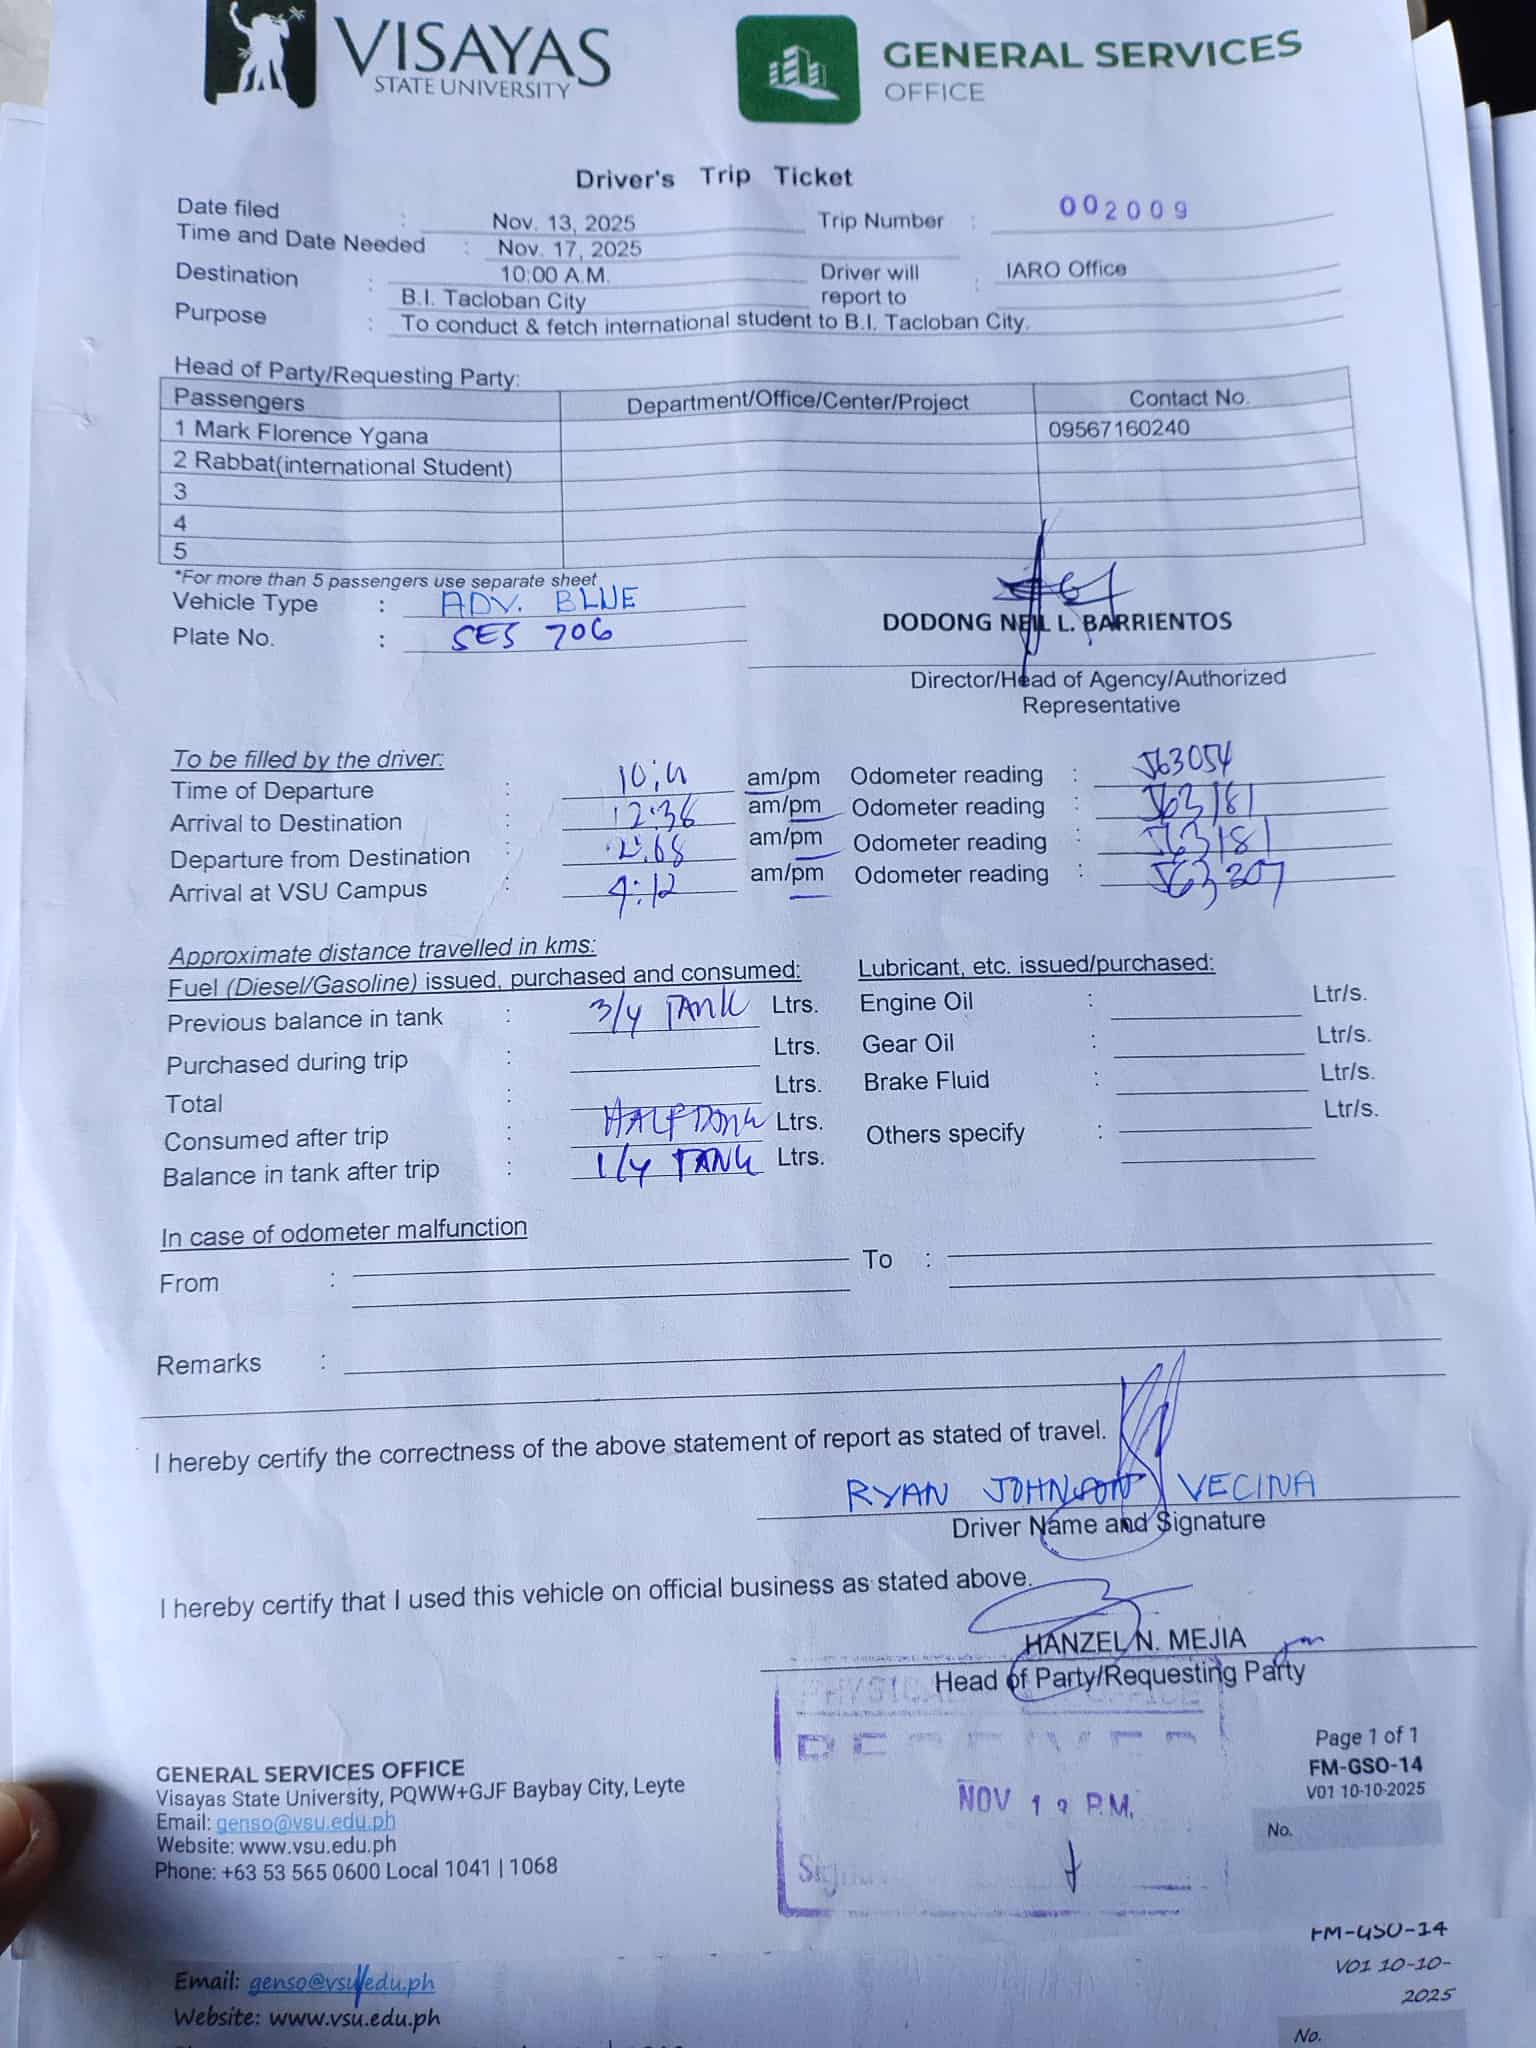 VISAYAS
STATE UNIVERSITY
GENERAL SERVICES
OFFICE
Driver's Trip Ticket
Date filed : Nov. 13, 2025 Trip Number : 002009
Time and Date Needed : Nov. 17, 2025
10:00 A.M.
Destination : B.I. Tacloban City Driver will report to : IARO Office
Purpose : To conduct & fetch international student to B.I. Tacloban City.
Head of Party/Requesting Party:
Passengers Department/Office/Center/Project Contact No.
1 Mark Florence Ygana 09567160240
2 Rabbat(international Student)
3
4
5
*For more than 5 passengers use separate sheet
Vehicle Type : ADV. BLUE
Plate No. : SES 706
DODONG NEIL L. BARRIENTOS
Director/Head of Agency/Authorized
Representative
To be filled by the driver:
Time of Departure : am/pm Odometer reading : 563054
Arrival to Destination : 12:36 am/pm Odometer reading : 563181
Departure from Destination : am/pm Odometer reading : 563181
Arrival at VSU Campus : 4:12 am/pm Odometer reading : 563307
Approximate distance travelled in kms:
Fuel (Diesel/Gasoline) issued, purchased and consumed: Lubricant, etc. issued/purchased:
Previous balance in tank : 3/4 TANK Ltrs. Engine Oil : Ltr/s.
Purchased during trip : Ltrs. Gear Oil : Ltr/s.
Total : Ltrs. Brake Fluid : Ltr/s.
Consumed after trip : HALF TANK Ltrs. Others specify : Ltr/s.
Balance in tank after trip : 1/4 TANK Ltrs.
In case of odometer malfunction
From : To :
Remarks :
I hereby certify the correctness of the above statement of report as stated of travel.
RYAN JOHNSON VECINA
Driver Name and Signature
I hereby certify that I used this vehicle on official business as stated above.
HANZEL N. MEJIA
Head of Party/Requesting Party
PHYSICAL OFFICE
RECEIVED
NOV P.M.
GENERAL SERVICES OFFICE
Visayas State University, PQWW+GJF Baybay City, Leyte
Email: genso@vsu.edu.ph
Website: www.vsu.edu.ph
Phone: +63 53 565 0600 Local 1041 | 1068
Page 1 of 1
FM-GSO-14
V01 10-10-2025
No.
Email: genso@vsu.edu.ph
Website: www.vsu.edu.ph
FM-GSO-14
V01 10-10-
2025
No.